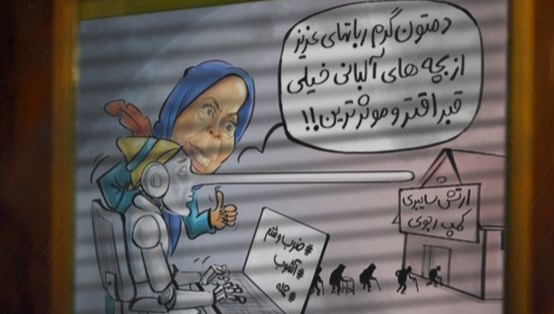 دمتون گرم رباتهای عزیز
از بچه های آلبانی خیلی
قبراقتر و موثرترین!!
ارتش سایبری
کمپ رجوی
#ضرب و شتم
#آشوب
#